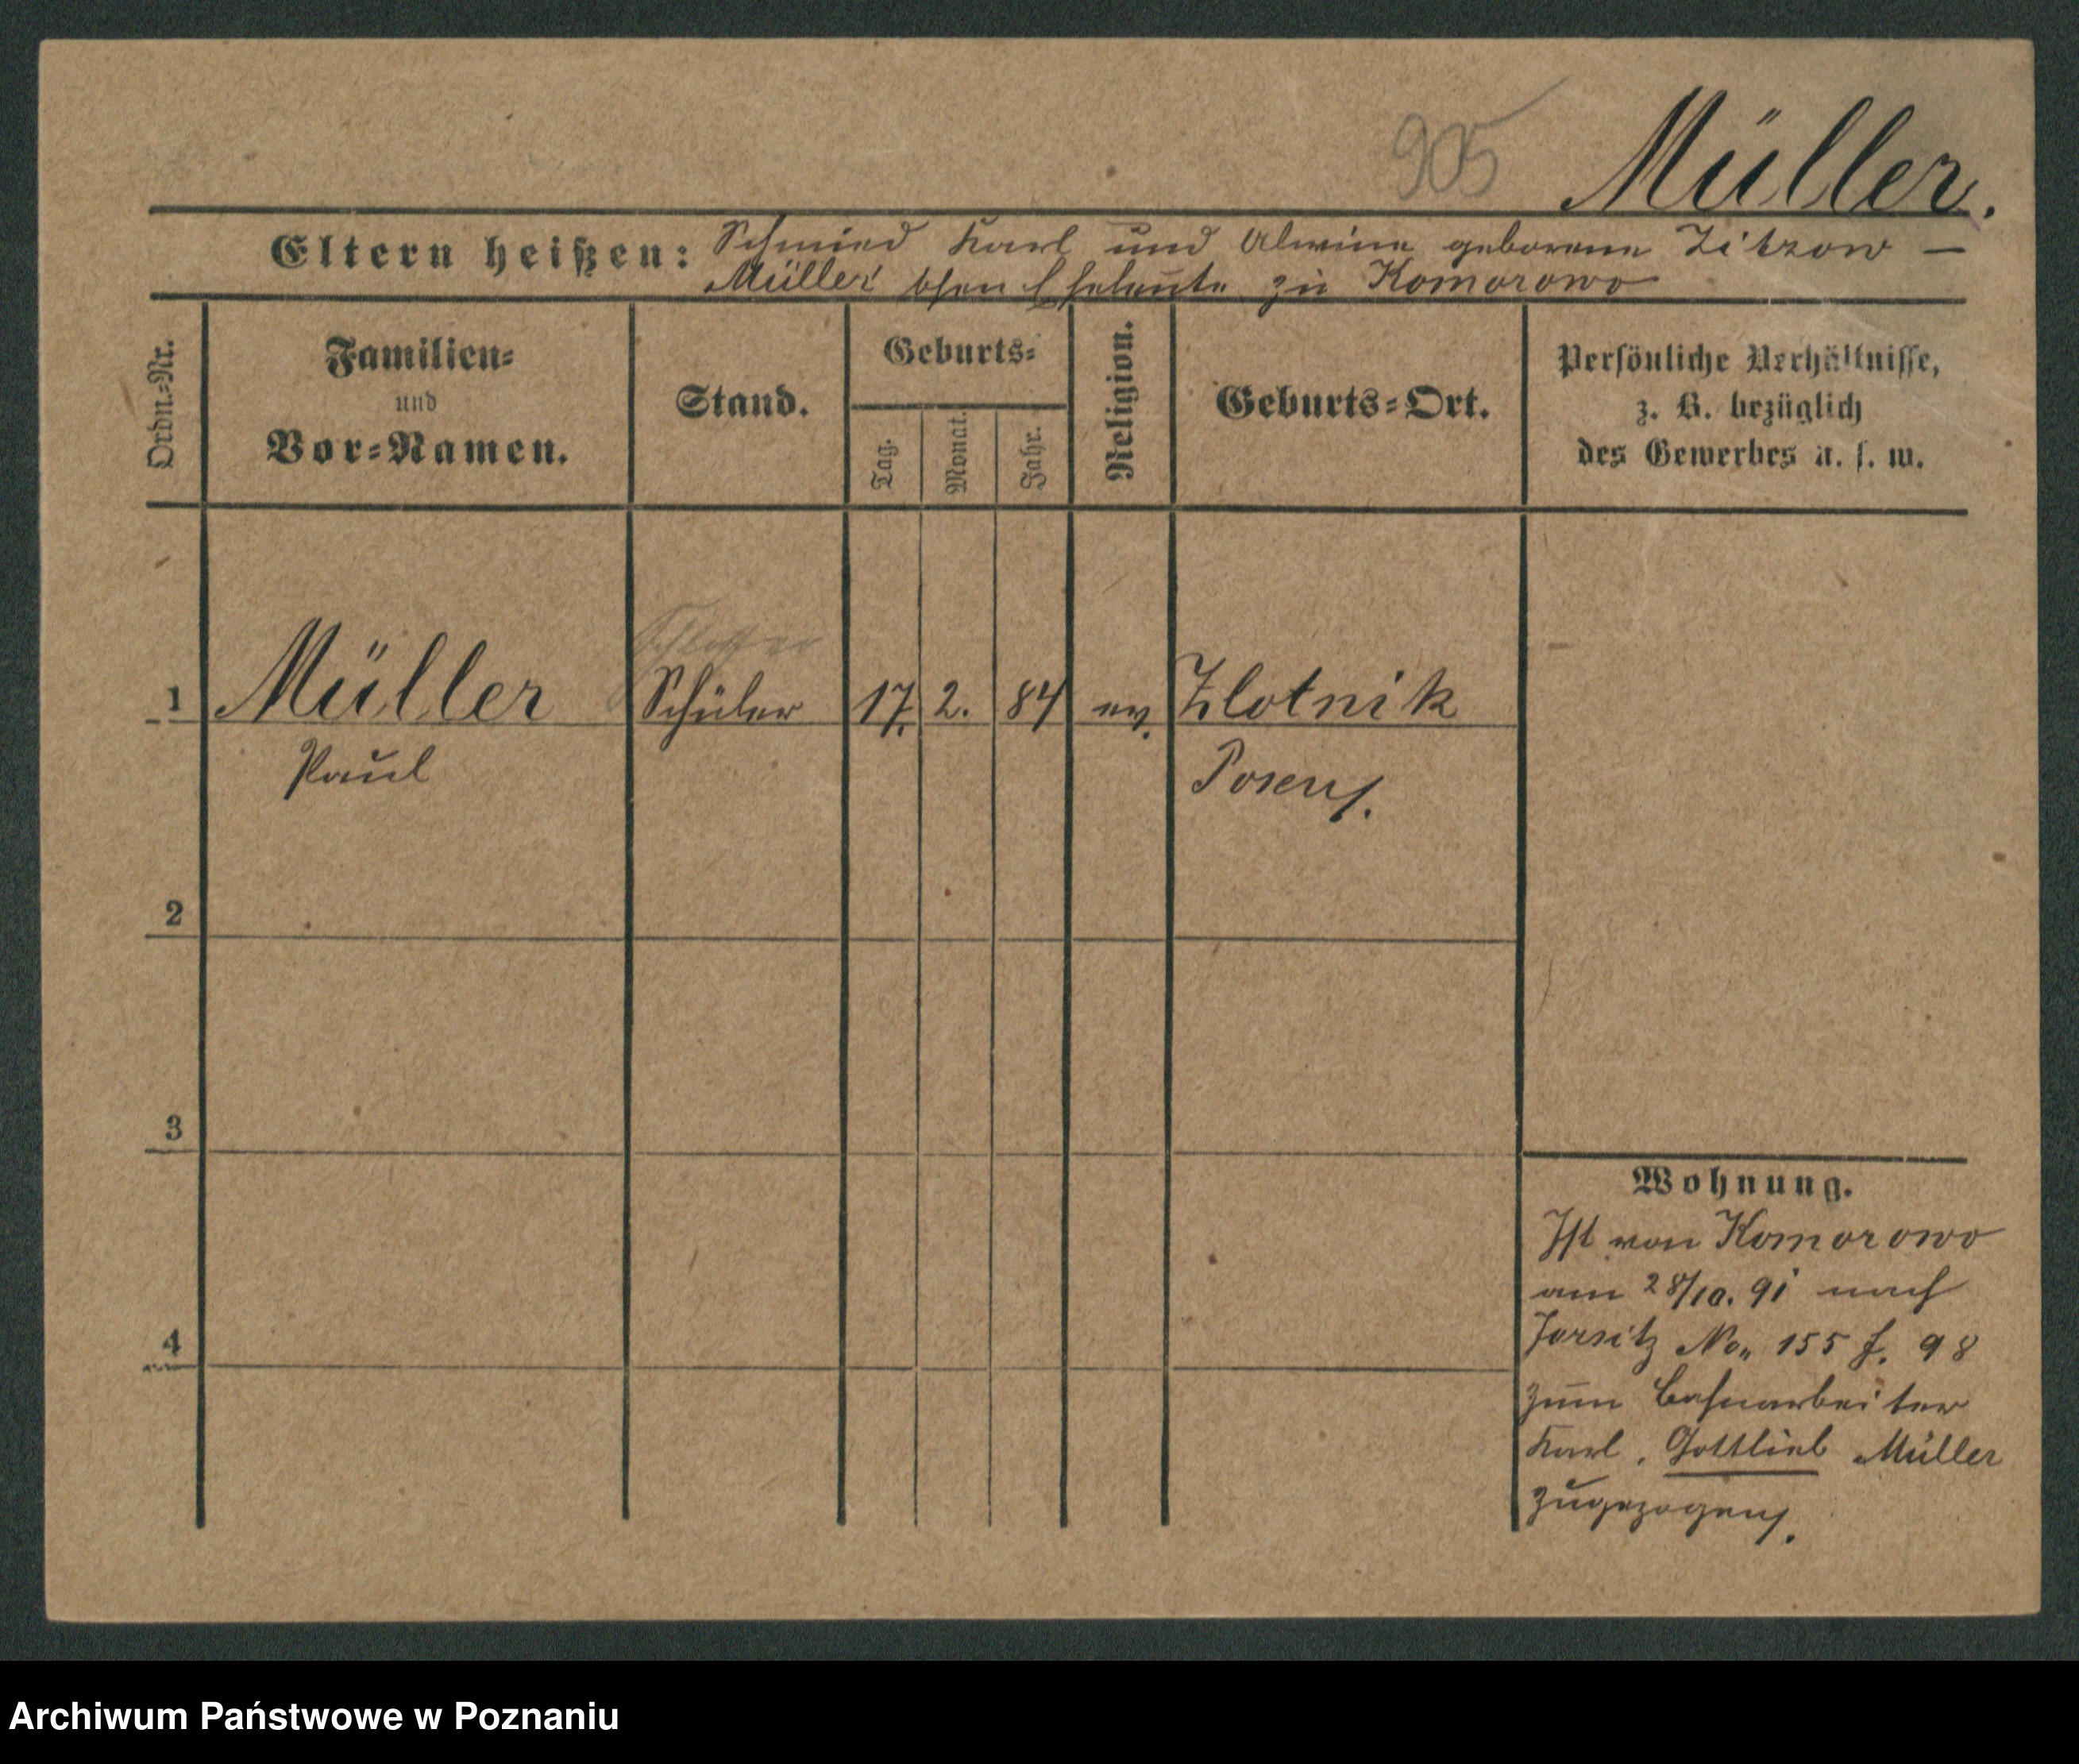 905 Müller.
Eltern heißen: Schmied Karl und Alwine geborene Zitzow —
Müller'schen Eheleute zu Komorowo
Ordn.=Nr.
Familien=
und
Vor=Namen.
Stand.
Geburts=
Tag.
Monat.
Jahr.
Religion.
Geburts=Ort.
Persönliche Verhältnisse,
z. B. bezüglich
des Gewerbes u. s. w.
1 Müller Schüler 17. 2. 84 ev. Zlotnik
Paul Posen.
2
3
4
Wohnung.
Ist von Komorowo
am 28/10. 91 nach
Jersitz No. 155 f. 98
zum Bahnarbeiter
Karl, Gottlieb Müller
zugezogen.
Archiwum Państwowe w Poznaniu